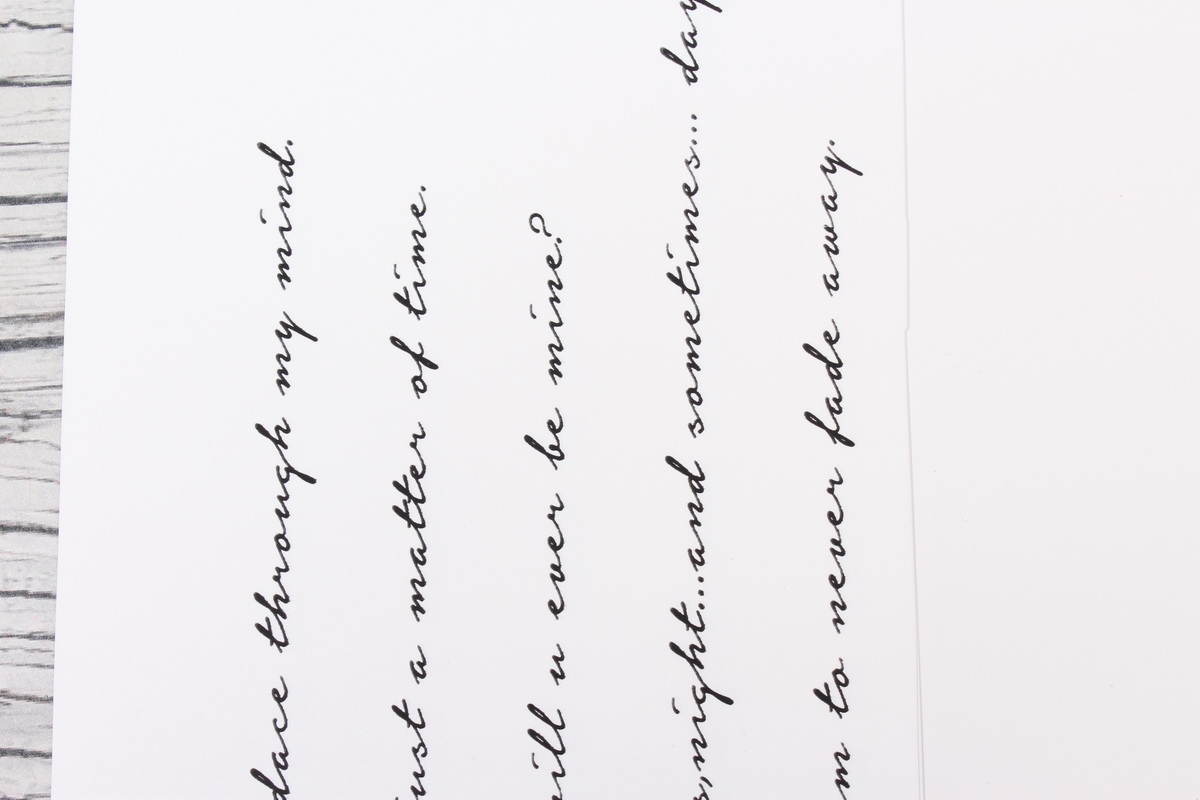 dace through my mind.
ust a matter of time.
ill u ever be mine?
s,night...and sometimes... day
m to never fade away.